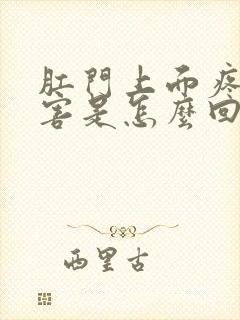 肛門上面疼
害是怎麼回
西里古